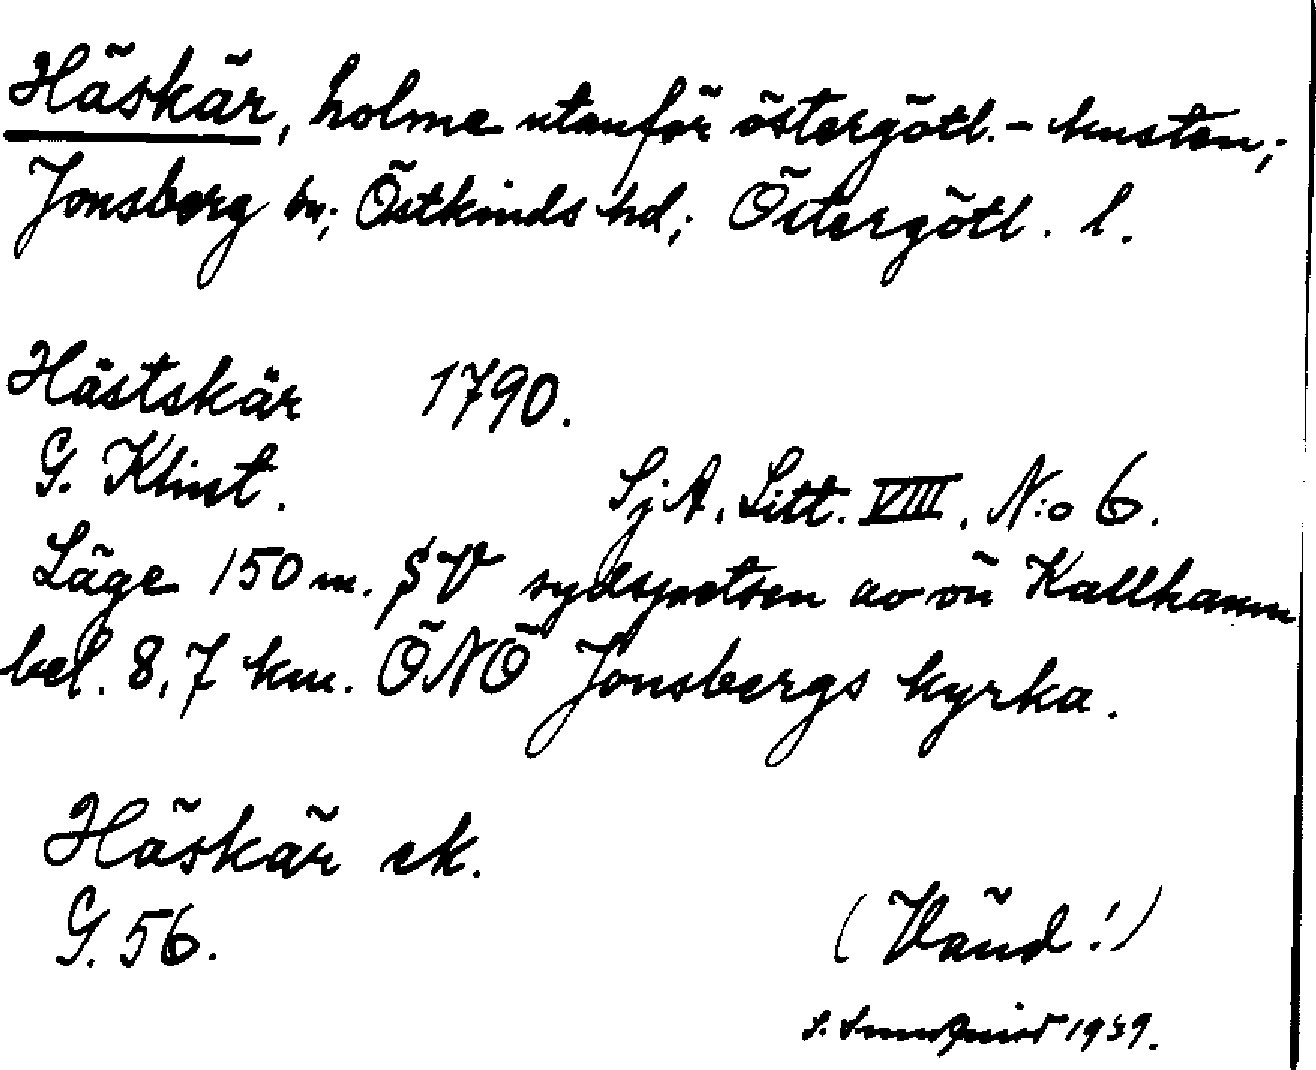 Häskär, holme utanför östergötl.-kusten;
Jonsberg sn; Östkinds hd; Östergötl. l.
Hästskär 1790.
G. Klint.
SjA. Litt. VIII. N:o 6.
Läge 150 m. SV sydspetsen av ön Kallhamn
bel. 8,7 km. ÖNÖ Jonsbergs kyrka.
Häskär ek.
G. 56.
(Vänd!)
S. 1939.